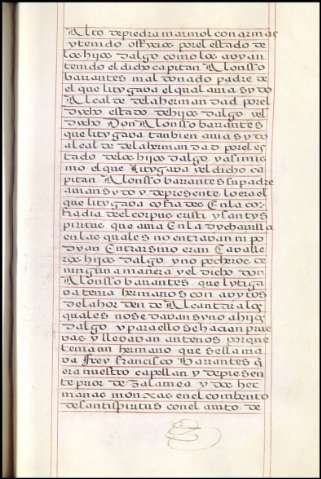 Alto de piedra marmol con armas
y tenido offizios por el estado de
los hijos dalgo como los auyan
tenido el dicho capitan Alonsso
barantes maldonado padre de
el que lityGava el qual auia sydo
Alcalde de la hermandad por el
dycho estado de hijos dalgo y el
dicho Don Alonsso barantes
que lityGava tanbien auia sydo
alcalde de la hermandad por el es
tado de los hijos dalgo y asimis
mo el que LitygaVa y el dicho ca
pitan Alonsso barantes su padre
auian sydo y de presente lo era el
que lityGava cofrades En la co
fradia de el corpus cristi y santys
piritus que auia En la dycha uilla
en la qual es no entravan ni po
dyan Entrar sino eran Cavalle
ros hijos dalgo y no pecheros de
ninguna manera y el dicho don
Alonsso barantes que lytiga
va terna hermanos con avytos
de la horden de Alcantra los
quales no se davan sy no a hijos
dalgo y para ello se hacian prue
vas y llevavan antenos porque
tenia un hermano que se llama
va frey francisco Barantes q
era nuestro capellan y de presen
te prior de Zalamea y dos her
manas monxas en el combento
de santispiritus con el auito de